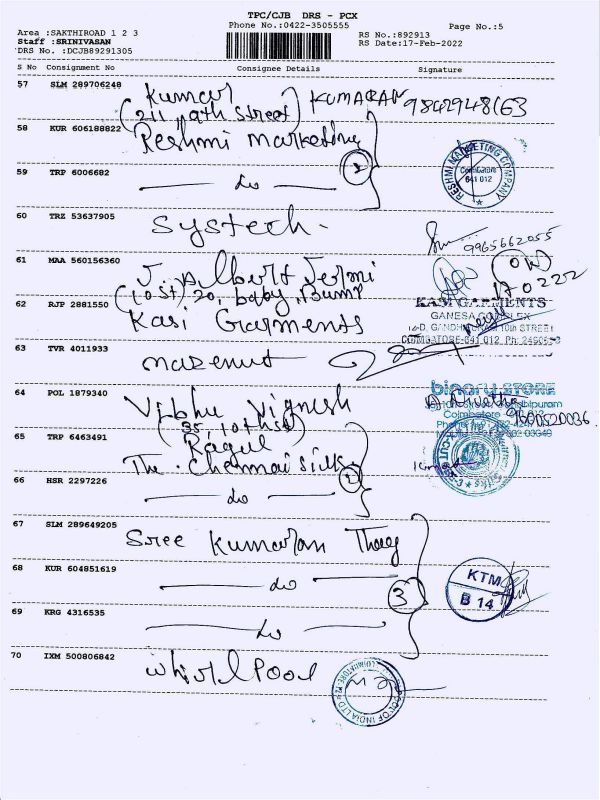 TPC/CJB DRS - PCX
Phone No.:0422-3505555
Page No.:5
Area :SAKTHIROAD 1 2 3
Staff :SRINIVASAN
DRS No. :DCJB89291305
RS No.:892913
RS Date:17-Feb-2022
S No Consignment No Consignee Details Signature
57 SLM 289706248 Kumar KUMARAN 9842948163
(211, 9th Street)
58 KUR 606188822 Reshmi Marketing
RESHMI MARKETING COMPANY
Coimbatore
641 012
59 TRP 6006682 do 2
60 TRZ 53637905 Systech
9965662055
61 MAA 560156360 J. Albert Jermi
170222
62 RJP 2881550 Kasi Garments
KASI GARMENTS
GANESA COMPLEX
10th STREET
COIMBATORE-641 012
63 TVR 4011933
64 POL 1879340 Vibhu Vignesh
(35, 10th st)
STORE
Coimbatore
65 TRP 6463491 Ragul
The Chennai Silks
66 HSR 2297226 do 2
67 SLM 289649205 Sree Kumaran Thang
68 KUR 604851619 do 3
KTM
B 14
69 KRG 4316535 do
70 IXM 500806842 Whirlpool
OF INDIA LTD